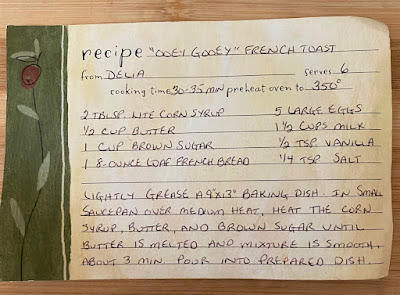 recipe "OOEY GOOEY" FRENCH TOAST
from DELIA serves 6
cooking time 30-35 MIN preheat oven to 350°
2 TBLSP. LITE CORN SYRUP 5 LARGE EGGS
1/2 CUP BUTTER 1 1/2 CUPS MILK
1 CUP BROWN SUGAR 1/2 TSP VANILLA
1 8-OUNCE LOAF FRENCH BREAD 1/4 TSP SALT
LIGHTLY GREASE A 9"X13" BAKING DISH. IN SMALL
SAUCEPAN OVER MEDIUM HEAT, HEAT THE CORN
SYRUP, BUTTER, AND BROWN SUGAR UNTIL
BUTTER IS MELTED AND MIXTURE IS SMOOTH,
ABOUT 3 MIN. POUR INTO PREPARED DISH.